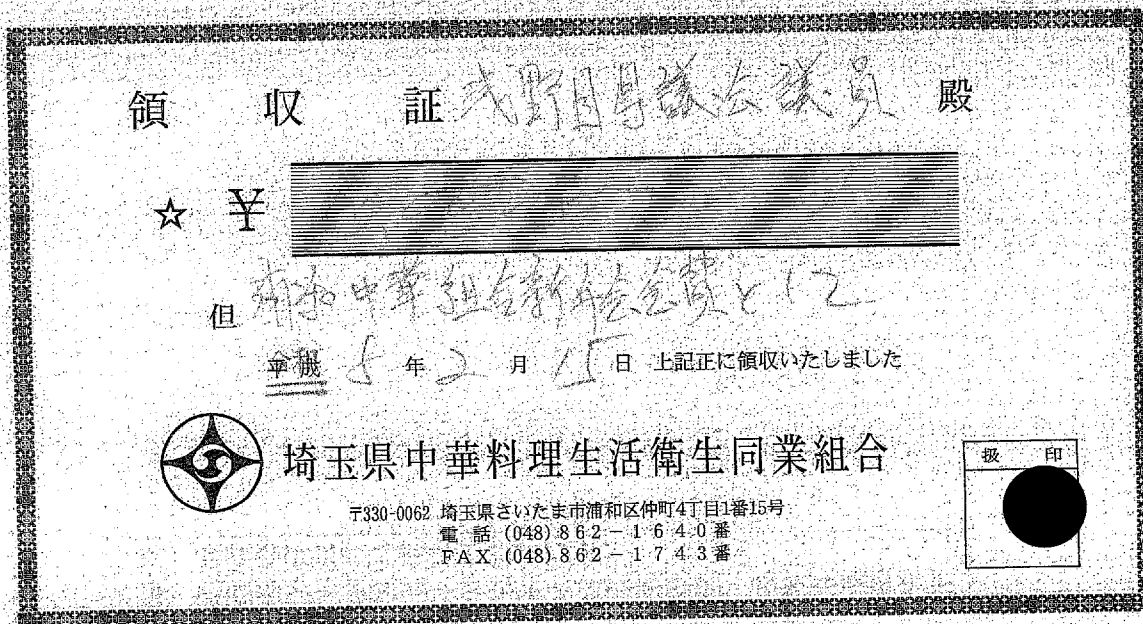 領収証 浅野目県議会議員 殿
☆ ¥
但 浦和中華組合新年会会費として
令和 5年2月15日 上記正に領収いたしました
埼玉県中華料理生活衛生同業組合
扱印
〒330-0062 埼玉県さいたま市浦和区仲町4丁目1番15号
電話 (048)862-1640番
FAX (048)862-1743番